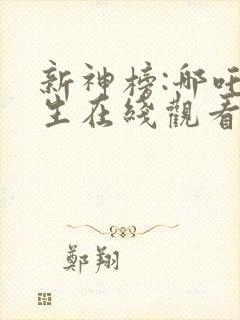 新神榜:哪吒
生在綫觀看
鄭翔